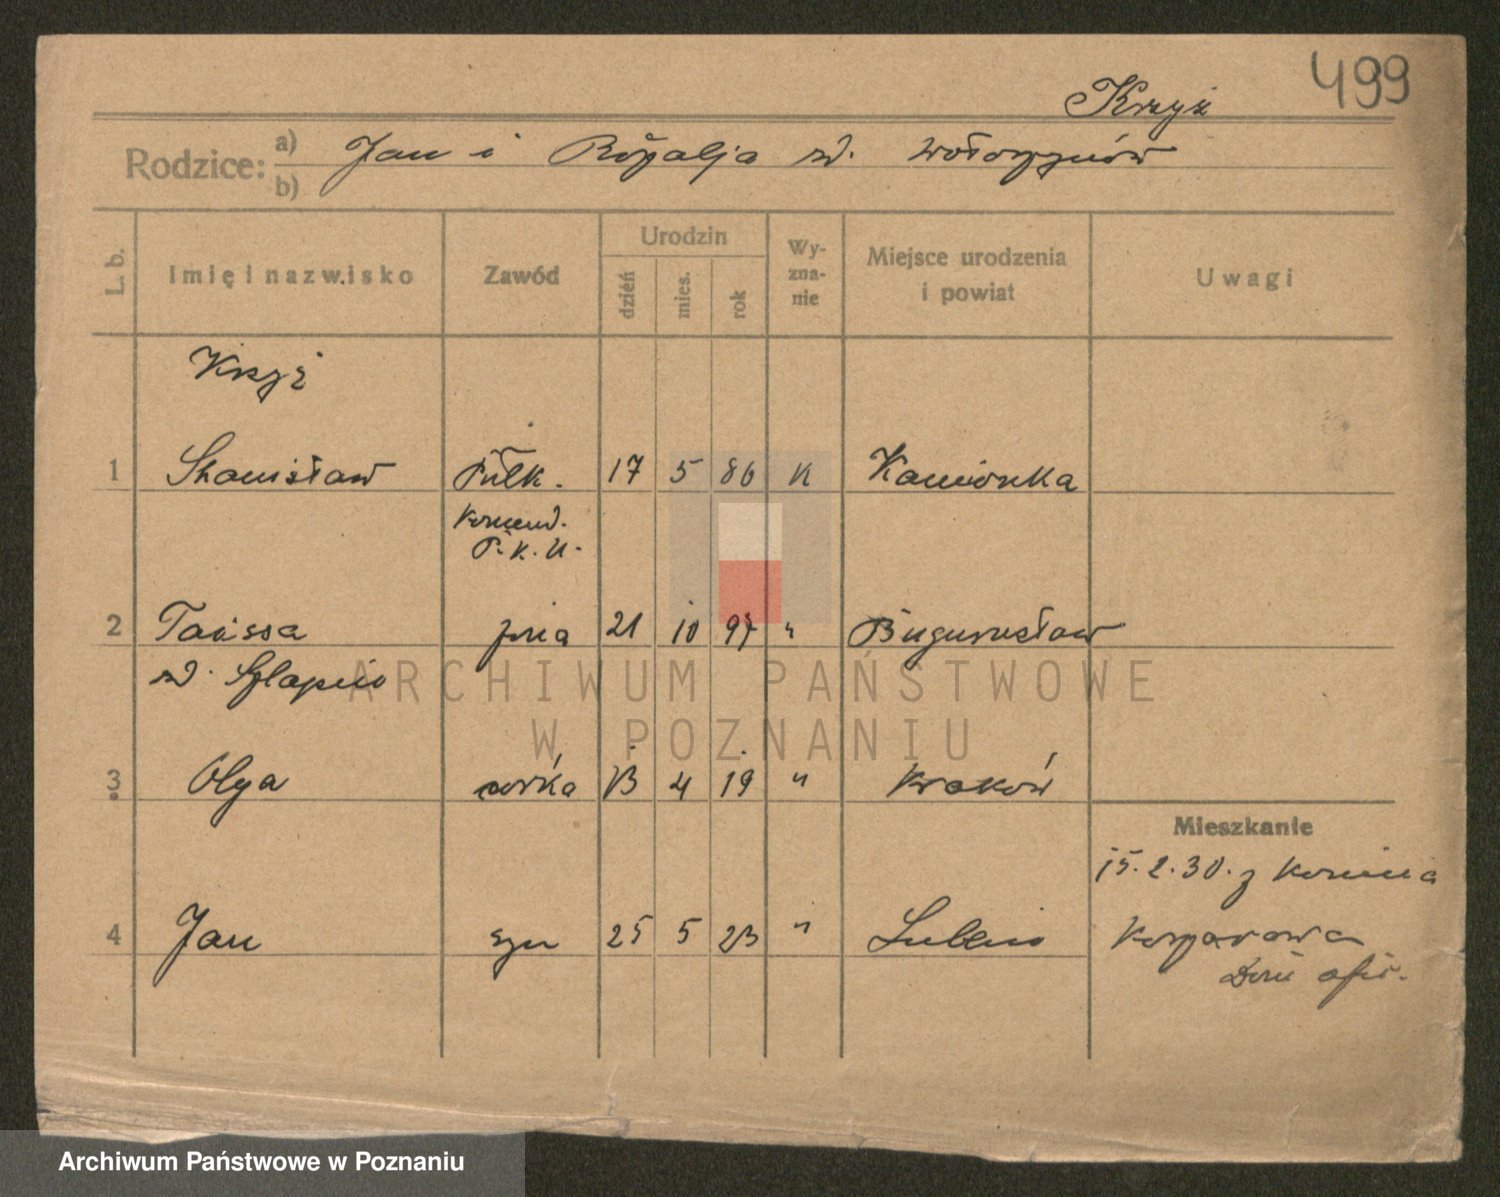 499
Krzyż
Rodzice: a) Jan i Rozalja zd. Wołoszynów
b)
L. b. Imię i nazwisko Zawód Urodzin dzień mies. rok Wyzna-nie Miejsce urodzenia i powiat Uwagi
Krzyż
1 Stanisław Pułk. 17 5 86 K Kamionka
Komend.
P.K.U.
2 Taissa żona 21 10 97 " Bugurusław
zd.
3 Olga córka 13 4 19 " Kraków
Mieszkanie
15.2.30. z Konina
4 Jan syn 25 5 23 " Lublin
Dom ofic.
ARCHIWUM PAŃSTWOWE
W POZNANIU
Archiwum Państwowe w Poznaniu